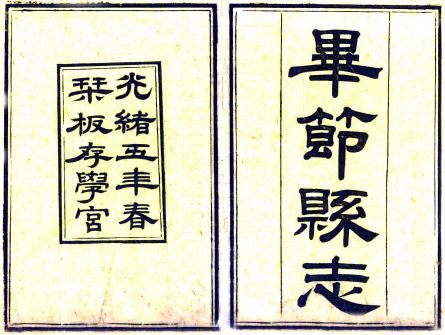 畢節縣志
光緒五年春
栞板存學宮